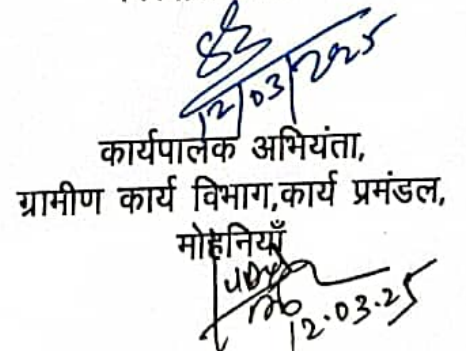 12/03/2025
कार्यपालक अभियंता,
ग्रामीण कार्य विभाग,कार्य प्रमंडल,
मोहनियाँ
12.03.25